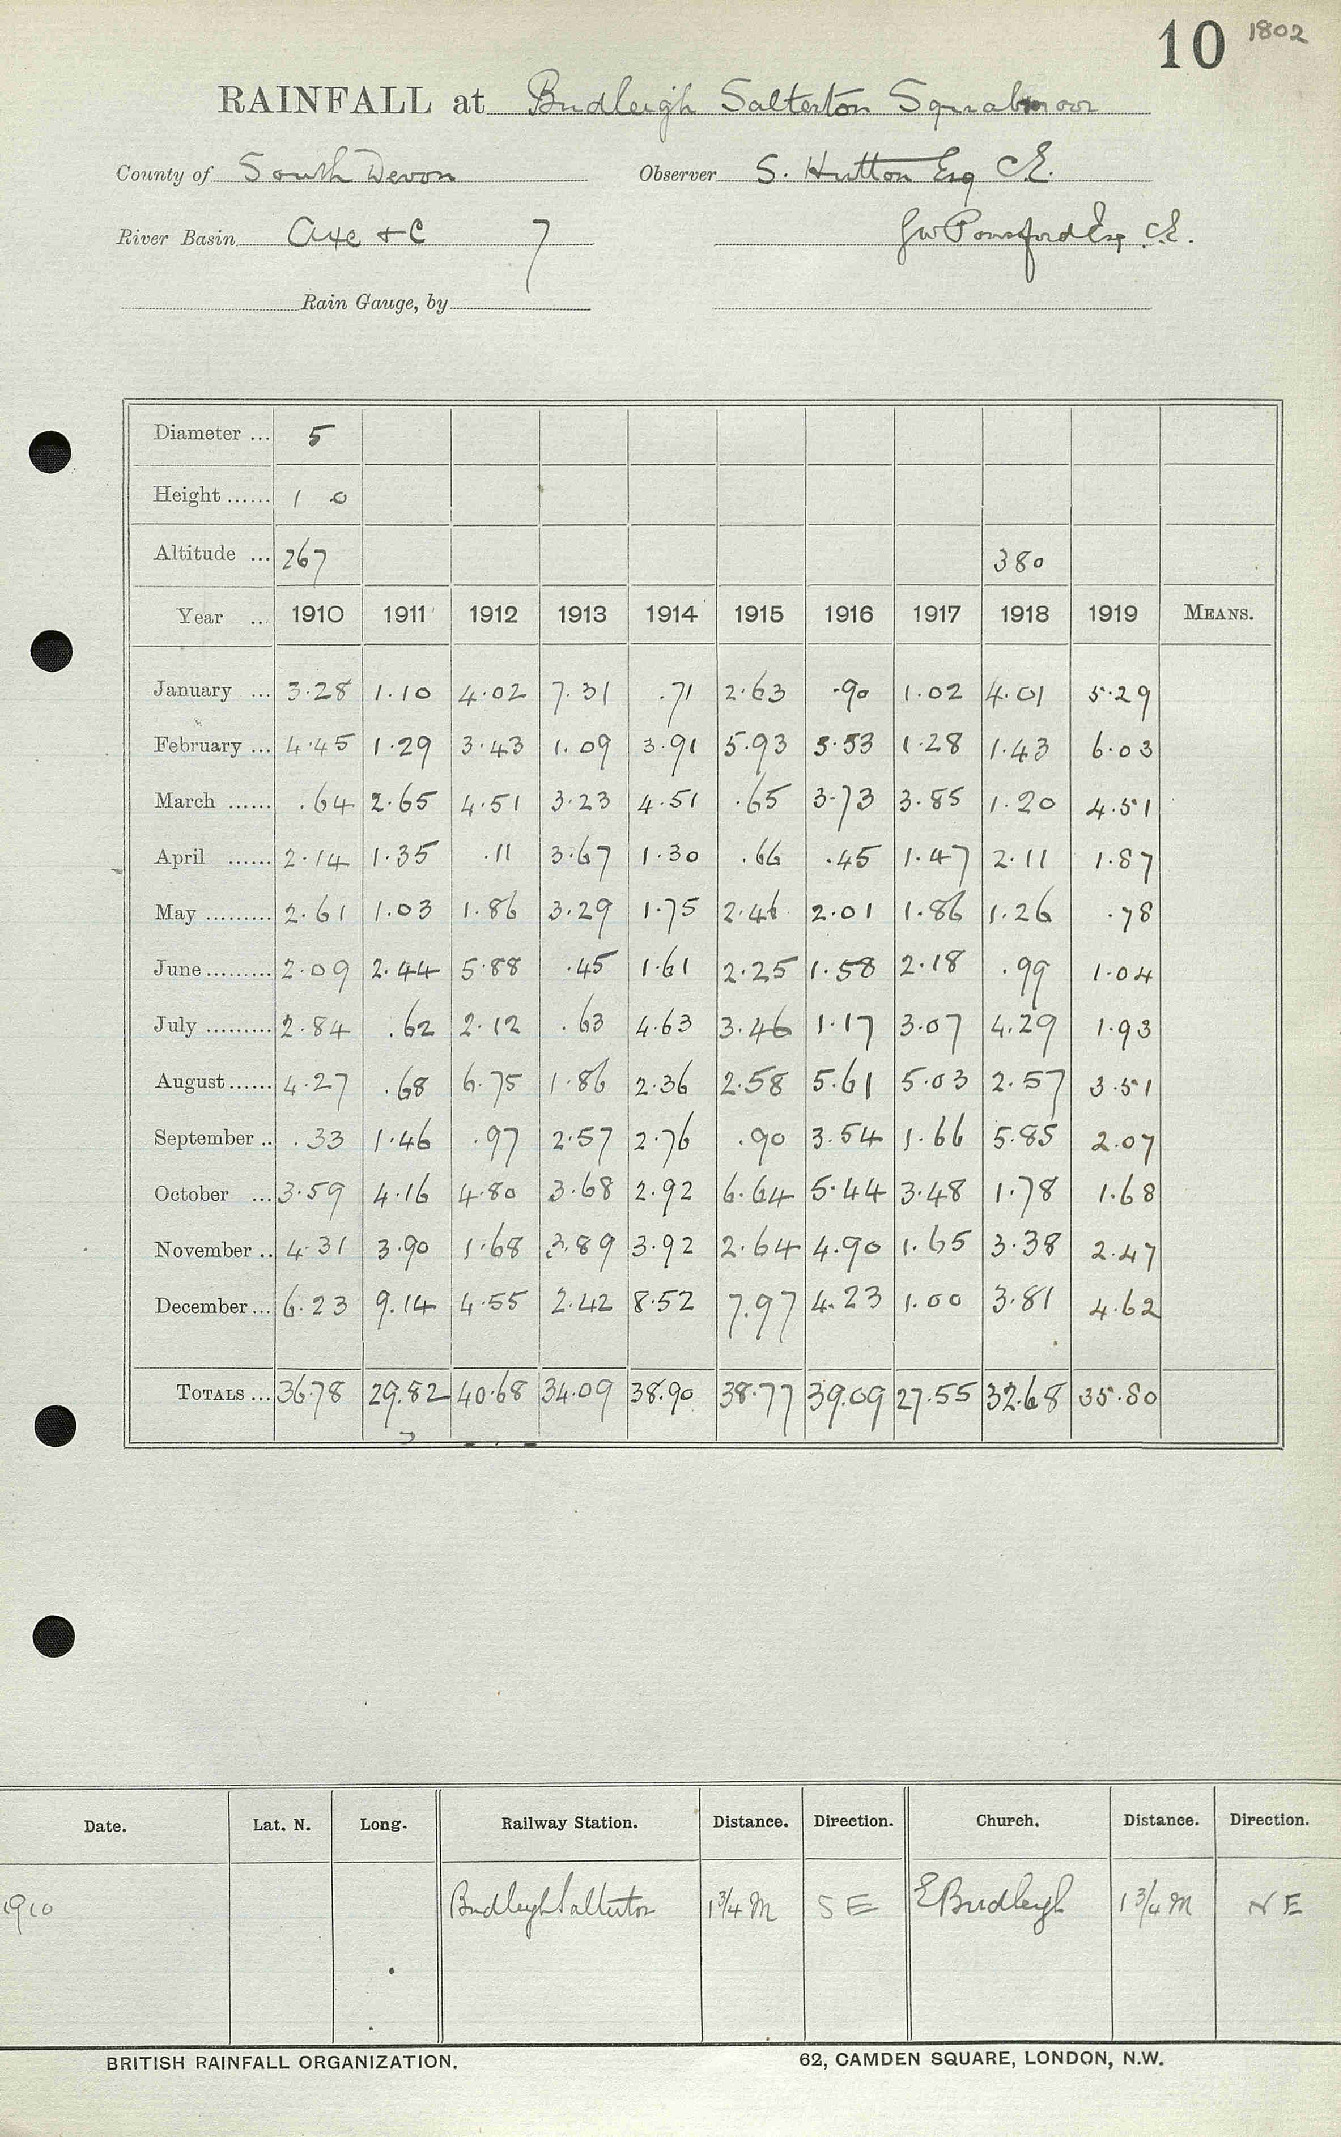 10 1802
RAINFALL at Budleigh Salterton Squabmoor
County of South Devon Observer S. Hutton Esq C.E.
River Basin Axe + C 7 GW Ponsford Esq C.E.
Rain Gauge, by
Diameter ... 5
Height ...... 1 0
Altitude ... 267 380
Year ... 1910 1911 1912 1913 1914 1915 1916 1917 1918 1919 MEANS.
January ... 3.28 1.10 4.02 7.31 .71 2.63 .90 1.02 4.01 5.29
February ... 4.45 1.29 3.43 1.09 3.91 5.93 5.53 1.28 1.43 6.03
March ...... .64 2.65 4.51 3.23 4.51 .65 3.73 3.85 1.20 4.51
April ...... 2.14 1.35 .11 3.67 1.30 .66 .45 1.47 2.11 1.87
May ......... 2.61 1.03 1.86 3.29 1.75 2.46 2.01 1.86 1.26 .78
June ......... 2.09 2.44 5.88 .45 1.61 2.25 1.58 2.18 .99 1.04
July ......... 2.84 .62 2.12 .63 4.63 3.46 1.17 3.07 4.29 1.93
August ...... 4.27 .68 6.75 1.86 2.36 2.58 5.61 5.03 2.57 3.51
September .. .33 1.46 .97 2.57 2.76 .90 3.54 1.66 5.85 2.07
October ... 3.59 4.16 4.80 3.68 2.92 6.64 5.44 3.48 1.78 1.68
November .. 4.31 3.90 1.68 3.89 3.92 2.64 4.90 1.65 3.38 2.47
December ... 6.23 9.14 4.55 2.42 8.52 7.97 4.23 1.00 3.81 4.62
TOTALS ... 36.78 29.82 40.68 34.09 38.90 38.77 39.09 27.55 32.68 35.80
Date. Lat. N. Long. Railway Station. Distance. Direction. Church. Distance. Direction.
1910 Budleigh Salterton 1 3/4 M S E E Budleigh 1 3/4 M N E
BRITISH RAINFALL ORGANIZATION. 62, CAMDEN SQUARE, LONDON, N.W.